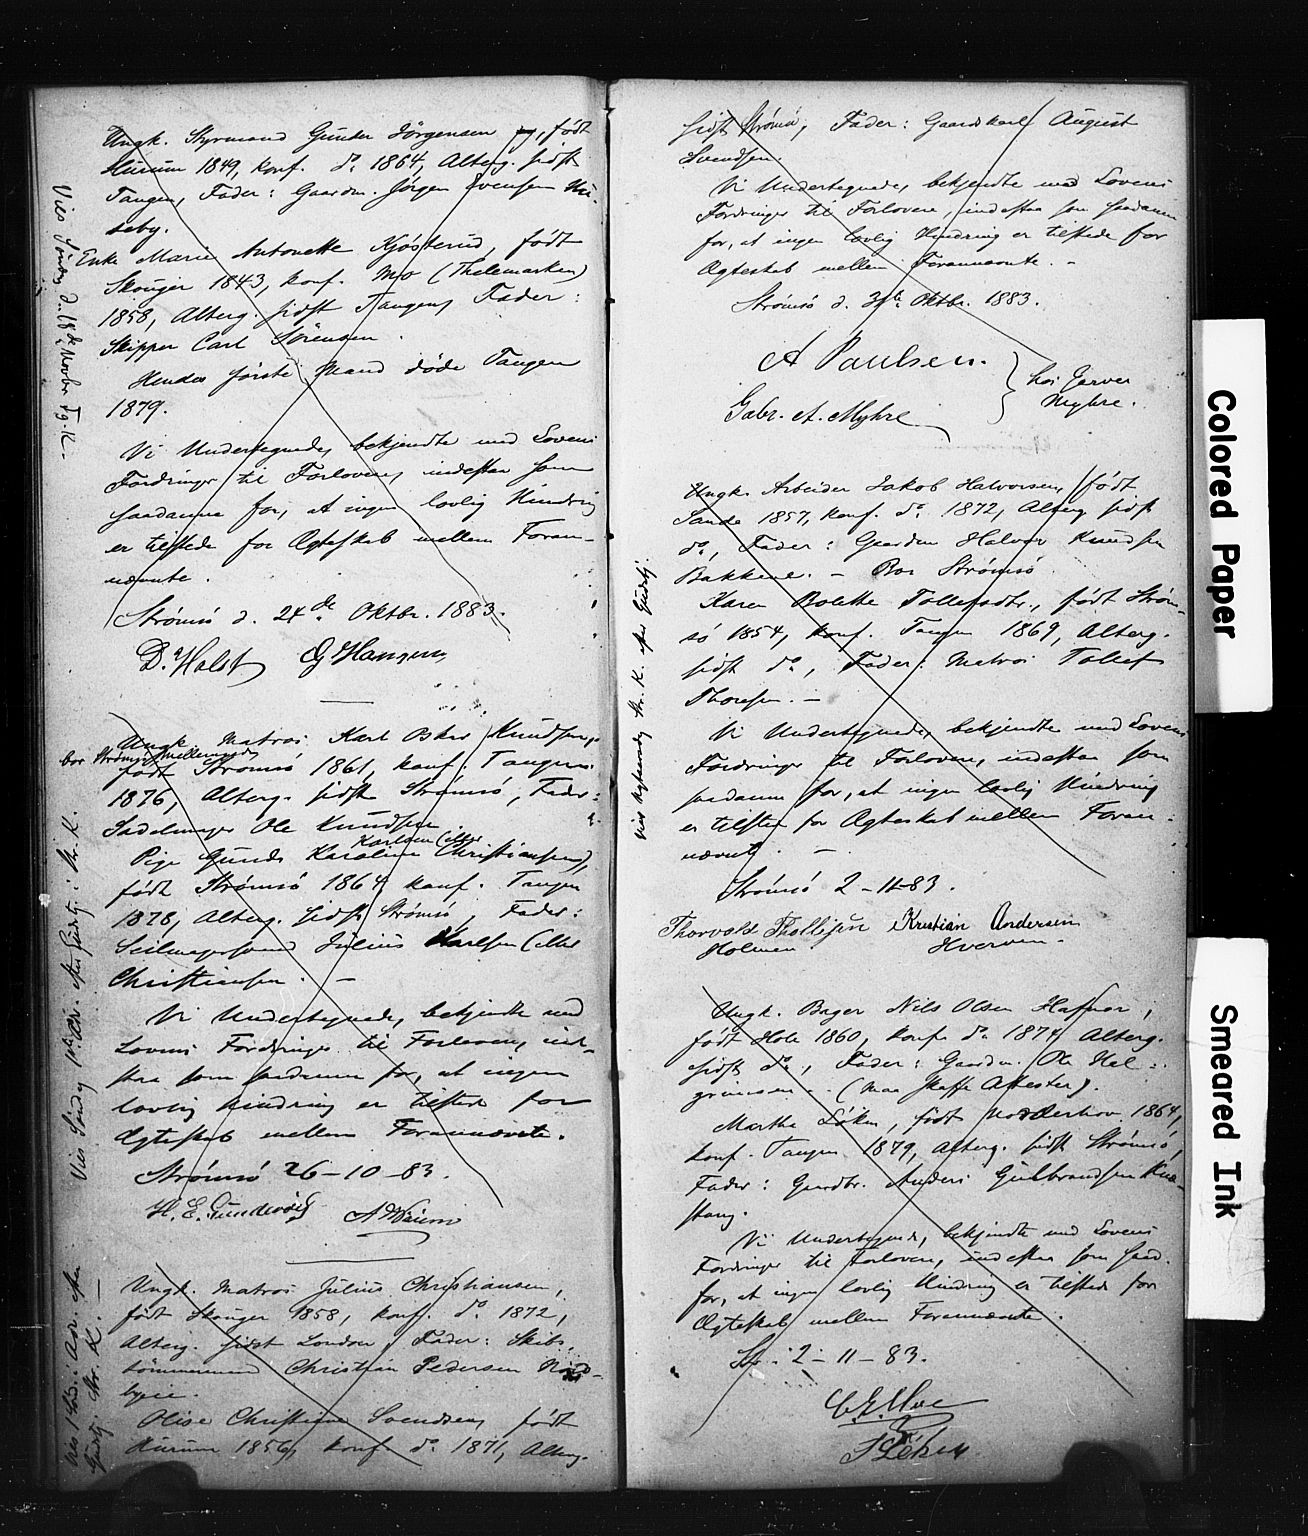 Ungk. Styrmand Gunder Jörgensen, født
Hurum 1849, konf. do 1864, Alterg. sidst
Tangen, Fader: Gaardm. Jörgen Evensen Hu-
seby.
Enke Marie Antonette Kjösterud, født
Skouger 1843, konf. Mo (Thelemarken)
1858, Alterg. sidst Tangen, Fader:
Skipper Carl Sörensen.
Hendes første Mand døde Tangen
1879.
Vi Undertegnede, bekjendte med Lovens
Fordringer til Forlovere, indestaa som
saadanne for, at ingen lovlig Hindring
er tilstede for Ægteskab mellem Foran-
nævnte.
Strömsö d. 24de Oktbr. 1883.
D. Holst G Hansen
Viet Söndag d. 18de Novbr Tg. K.
Ungk. Matros Karl Oskar Knudsen,
bor Strömsö
født Strömsö 1861, konf. Tangen
1876, Alterg. sidst Strömsö, Fader:
Sadelmager Ole Knudsen
Karlsen (eller
Pige Gunda Karoline Christiansen),
født Strömsö 1864, konf. Tangen
1878, Alterg. sidst Strömsö, Fader:
Seilmagersvend Julius Karlsen (eller
Christiansen. —
Vi Undertegnede, bekjendte med
Lovens Fordringer til Forlovere, inde-
staa som saadanne for, at ingen
lovlig Hindring er tilstede for
Ægteskab mellem Forannævnte.
Strömsö 26-10-83.
H. E. Gundersen
Viet Söndag 1ste efter Gudstj. i Str. K.
Ungk. Matros Julius Christiansen,
født Skouger 1858, konf. do 1872,
Alterg. sidst London, Fader: Skibs-
tömmermand Christian Pedersen Nord-
byeie.
Olise Christine Svendsen, født
Hurum 1856, konf. do 1871, Alterg.
Gudstj. Str. K. —
sidst Strömsö, Fader: Gaardskarl August
Svendsen.
Vi Undertegnede, bekjendte med Lovens
Fordringer til Forlovere, indestaa som saadanne
for, at ingen lovlig Hindring er tilstede for
Ægteskab mellem Forannævnte. —
Strömsö d. Oktbr. 1883.
A Paulsen.
Gabr. A. Myhre
hos Garver
Myhre.
Ungk. Arbeider Jakob Halvorsen, født
Sande 1857, konf. do 1872, Alterg. sidst
do, Fader: Gaardm Halvor Knudsen
Bakkene. — Bor Strömsö.
Karen Bolette Tollefsdtr., født Ström-
sö 1854, konf. Tangen 1869, Alterg.
sidst do, Fader: Matros Tollef
Thoresen. —
Vi Undertegnede, bekjendte med Lovens
Fordringer til Forlovere, indestaa som
saadanne for, at ingen lovlig Hindring
er tilstede for Ægteskab mellem Foran-
nævnte. —
Strömsö 2-11-83.
Thorvald Thollefsen Kristian Andersen
Holmen Hverven.
Str. K. efter Gudstj.
Ungk. Bager Nils Olsen Hafnor,
født Hole 1860, konf. do 1874, Alterg.
sidst do, Fader: Gaardm. Ole Hel-
grimsen. (maa skaffe Attester).
Marthe Löken, født Norderhov 1864,
konf. Tangen 1879, Alterg. sidst Strömsö,
Fader: Gaardbr. Anders Gulbrandsen Knæ-
stang.
Vi Undertegnede, bekjendte med Lovens
Fordringer til Forlovere, indestaa som saad.
for, at ingen lovlig Hindring er tilstede for
Ægteskab mellem Forannævnte.
Str. 2-11-83.
C. E. Moe
Colored Paper
Smeared Ink